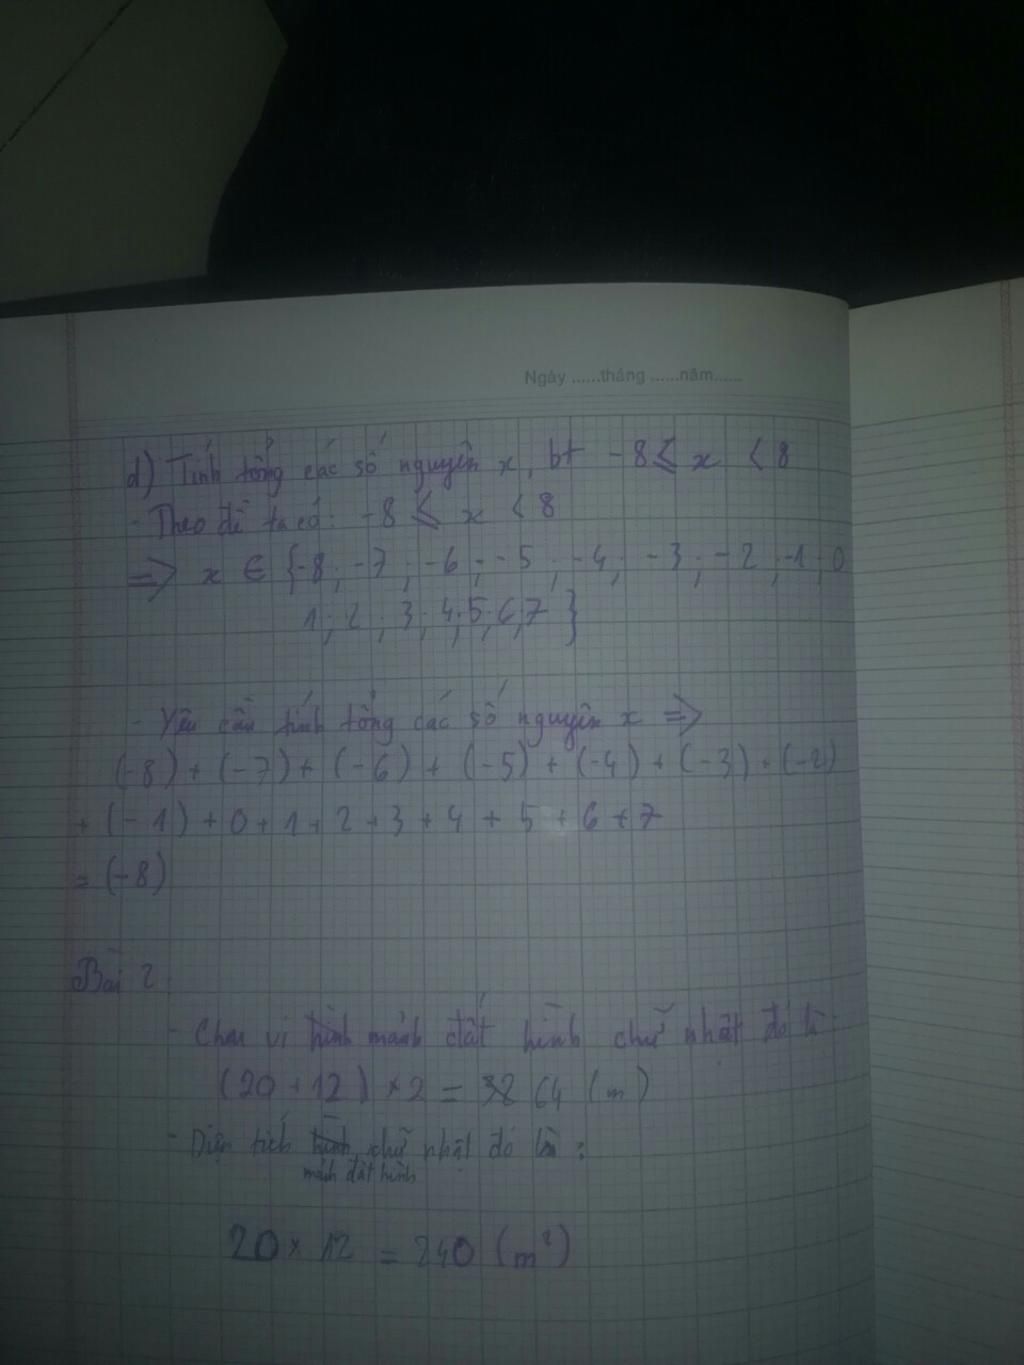 Ngày ......tháng ......năm......
d) Tính tổng các số nguyên x, bt -8 ≤ x < 8
- Theo đề ta có: -8 ≤ x < 8
=> x ∈ {-8; -7; -6; -5; -4; -3; -2; -1; 0
1; 2; 3; 4; 5; 6; 7}
- Yêu cầu tính tổng các số nguyên x =>
(-8) + (-7) + (-6) + (-5) + (-4) + (-3) + (-2)
+ (-1) + 0 + 1 + 2 + 3 + 4 + 5 + 6 + 7
= (-8)
Bài 2
- Chu vi hình mảnh đất hình chữ nhật đó là
(20 + 12) × 2 = 64 (m)
- Diện tích hình chữ nhật đó là:
mảnh đất hình
20 × 12 = 240 (m²)